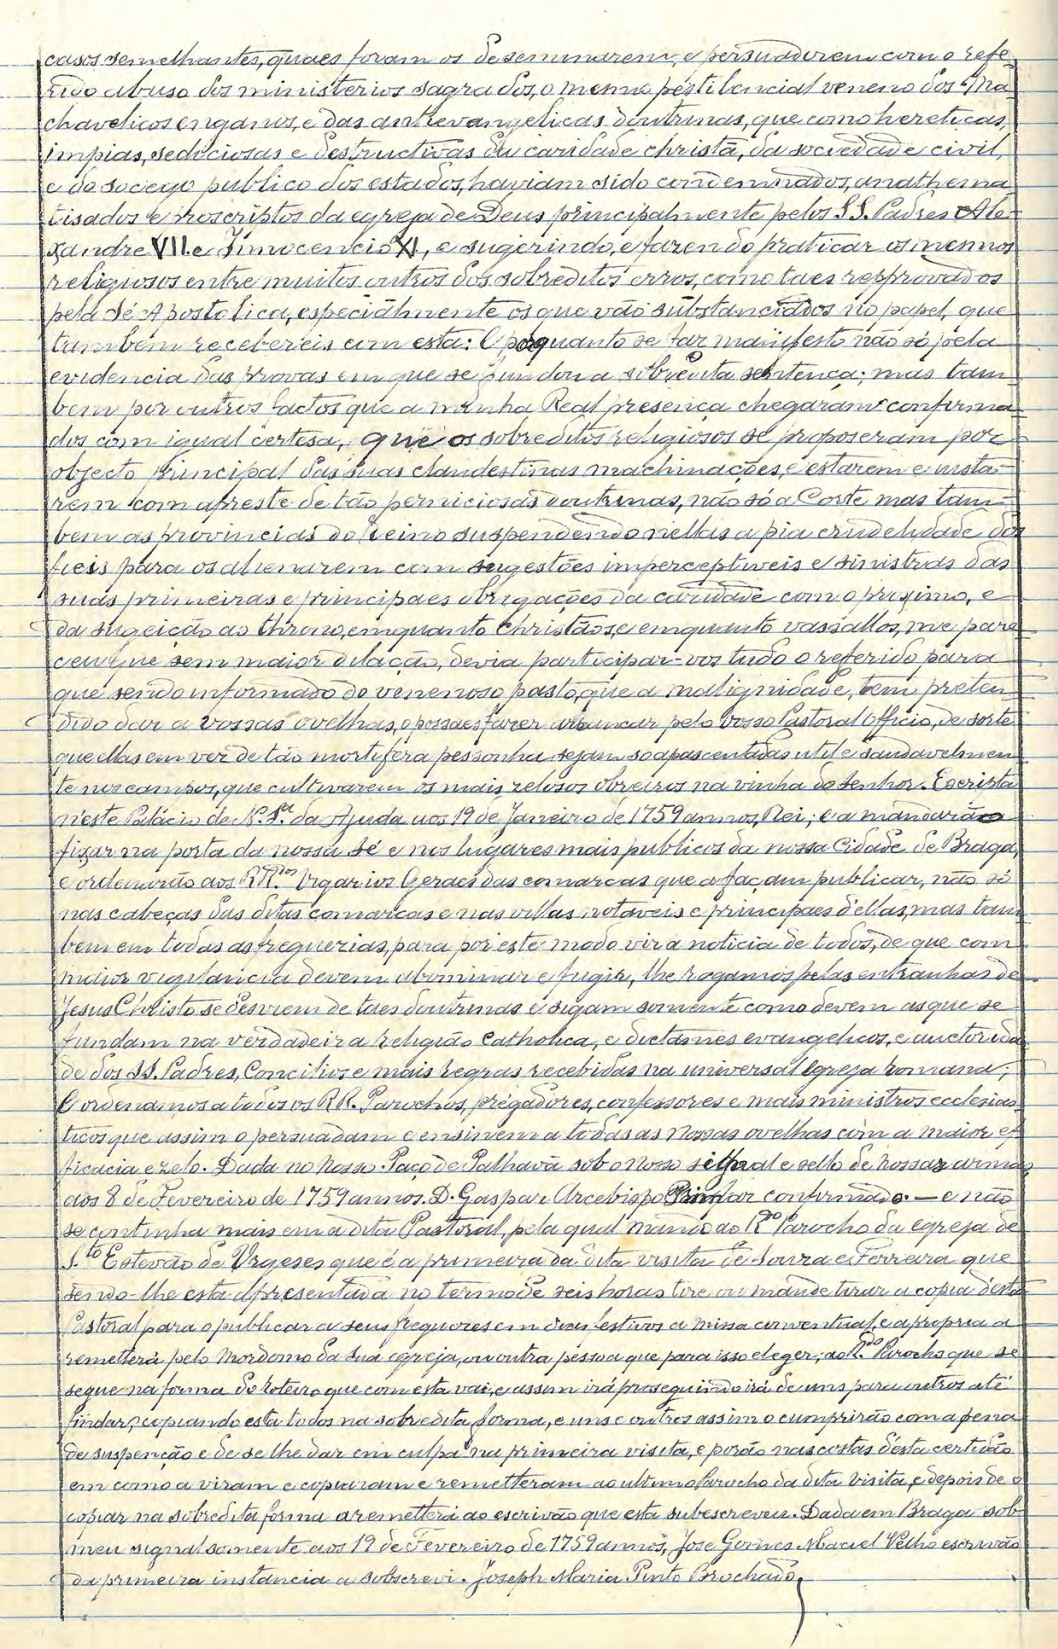 casos semelhantes, quaes foram os deseminarem, e persuadirem com o refe-
rido abuso dos ministerios sagrados, o mesmo péstilencial veneno dos Ma-
chavelicos enganos, e das antievangelicas doutrinas, que como hereticas,
impias, sediciosas e destructivas da caridade christã, da sociedade civil,
e do socego publico dos estados, haviam sido condemnados, anathema
tisados e proscriptos da egreja de Deus principalmente pelos S.S. Padres Ale-
xandre VII. e Innocencio XI, e sugerindo, e fazendo praticar os mesmos
religiosos entre muitos outros dos sobreditos erros, como taes reprovados
pela Sé Apostolica, especialmente os que vão substanciados no papel, que
tambem recebereis com esta: E porquanto se faz manifesto não só pela
evidencia das provas em que se fundou a sobredita sentença; mas tam-
bem por outros factos que a minha Real presença chegaram confirma
dos com igual certesa, que os sobreditos religiosos se proposeram por
objecto principal das suas clandestinas machinações, e estarem e insta-
rem com a peste de tão perniciosas doutrinas, não só a Corte mas tam-
bem as provincias do reino suspendendo nellas a pia crudelidade dos
fieis para os alienarem com sugestões imperceptiveis e sinistras das
suas primeiras e principaes obrigações da caridade com o proximo, e
da sugeição ao throno, emquanto christãos, e emquanto vassallos, me pare
ceu que sem maior dilação, devia participar-vos tudo o referido para
que sendo informado do venenoso pasto, que a malignidade, tem preten-
dido dar a vossas ovelhas, o possaes fazer arrancar pelo vosso Pastoral Officio, de sorte
que ellas em vez de tão mortifera pessonha sejam so apascentadas util e saudavelmen
te nos campos, que cultivarem os mais zelosos obreiros na vinha do Senhor. Escripta
n'este Palácio de N. Sr.ª da Ajuda aos 19 de Janeiro de 1759 annos, Rei; e a mandarão
fixar na porta da nossa Sé e nos lugares mais publicos da nossa Cidade de Braga,
e ordenarão aos RR.dos Vigarios Geraes das comarcas que a façam publicar, não só
nas cabeças das ditas comarcas e nas villas notaveis e principaes d'ellas, mas tam
bem em todas as freguezias, para por este modo vir a noticia de todos, de que com
maior vigilancia devem abominar e fugir, lhe rogamos pelas entranhas de
Jesus Christo se desviem de taes doutrinas e sigam somente como devem as que se
fundam na verdadeira religião catholica, e dictames evangelicos, e auctorida
de dos SS. Padres, Concilios e mais regras recebidas na universal Egreja romana;
E ordenamos a todos os RR. Parochos, prégadores, confessores e mais ministros ecclesias
ticos que assim o persuadam e ensinem a todas as nossas ovelhas com a maior ef
ficacia e zelo. Dada no Nosso Paço de Palhavã sob o nosso signal e sello de nossas armas
aos 8 de Fevereiro de 1759 annos. D. Gaspar Arcebispo Primaz confirmado. — e não
se continha mais em a dita Pastoral, pela qual mando ao R.do Parocho da egreja de
S.to Estevão de Urgeses que é a primeira da dita visita de Souza e Ferreira que
sendo-lhe esta apresentada no termo de seis horas tire ou mande tirar a copia d'esta
Pastoral para o publicar a seus freguezes em dias festivos a missa conventual, e a propria a
remetterá pelo Mordomo da sua egreja, ou outra pessoa que para isso eleger, ao R.do Parocho que se
segue na forma do roteiro que com esta vai, e assim irá proseguindo irá de uns para outros até
findar, copiando esta todos na sobredita forma, e uns e outros assim o cumprirão com a pena
de suspenção e de se lhe dar em culpa na primeira visita, e porão nas costas d'esta certidão
em como a viram e copiaram e remetteram ao ultimo Parocho da dita visita, e depois de o
copiar na sobredita forma a remetterá ao escrivão que esta subescreveu. Dada em Braga sob
meu signal somente aos 19 de Fevereiro de 1759 annos, José Gomes Maciel Velho escrivão
da primeira instancia a sobscrevi. Joseph Maria Pinto Brochado,